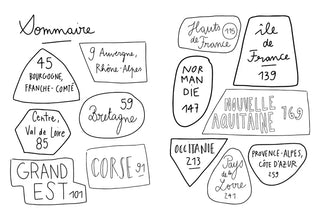 Sommaire
45
BOURGOGNE,
FRANCHE-COMTÉ
9 Auvergne,
Rhône-Alpes
Centre,
Val de Loire
85
59
Bretagne
GRAND
EST 101
CORSE 91
Hauts
de France 115
île
de
France
139
NOR
MAN
DIE
147
NOUVELLE
AQUITAINE 169
OCCITANIE
213
Pays
de la
Loire
241
PROVENCE-ALPES,
CÔTE D'AZUR
259